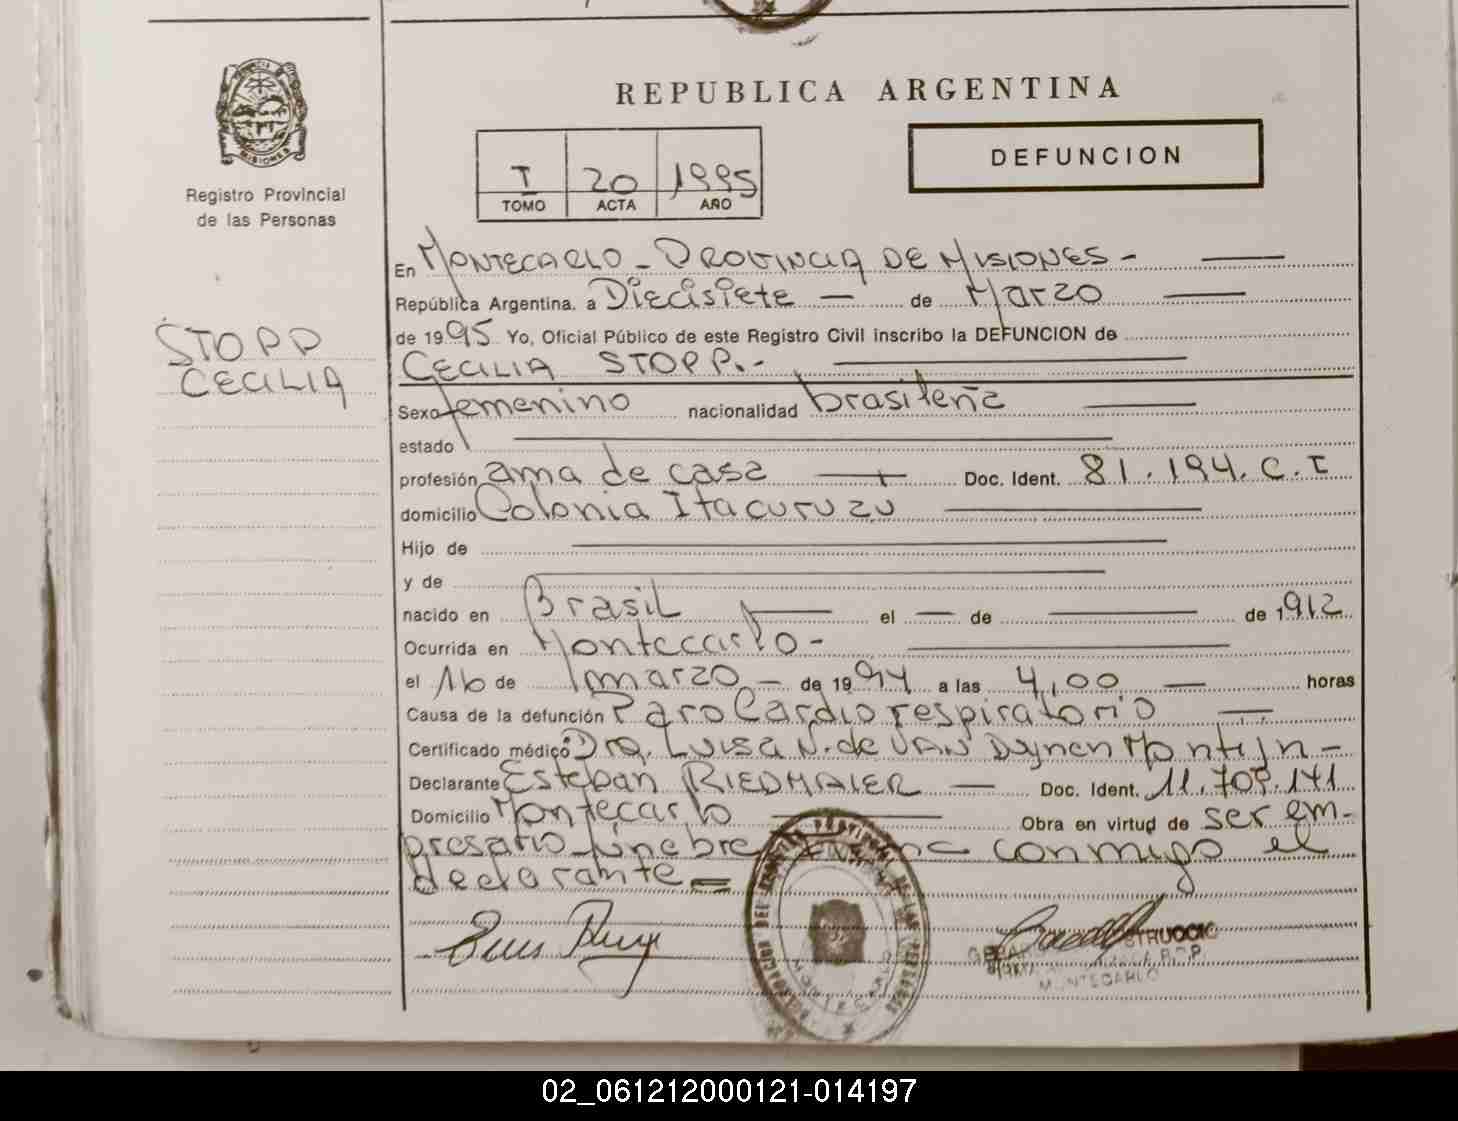 REPUBLICA ARGENTINA
MISIONES
Registro Provincial
de las Personas
I 20 1995
TOMO ACTA AÑO
DEFUNCION
STOPP
CECILIA
En MONTECARLO - PROVINCIA DE MISIONES -
República Argentina, a Diecisiete — de Marzo
de 1995 Yo, Oficial Público de este Registro Civil inscribo la DEFUNCION de
CECILIA STOPP.-
Sexo femenino nacionalidad brasileña
estado
profesión ama de casa Doc. Ident. 81.194. C.I
domicilio Colonia Itacuruzu
Hijo de
y de
nacido en Brasil el — de — de 1912
Ocurrida en Montecarlo -
el 16 de marzo — de 1994 a las 4,00 — horas
Causa de la defunción Paro Cardio respiratorio —
Certificado médico Dra. Luisa N. de VAN Dynen Montijn -
Declarante Esteban RIEDMAIER — Doc. Ident. 11.709.171
Domicilio Montecarlo Obra en virtud de ser em-
presario fúnebre conmigo el
declarante =
MONTECARLO
02_061212000121-014197